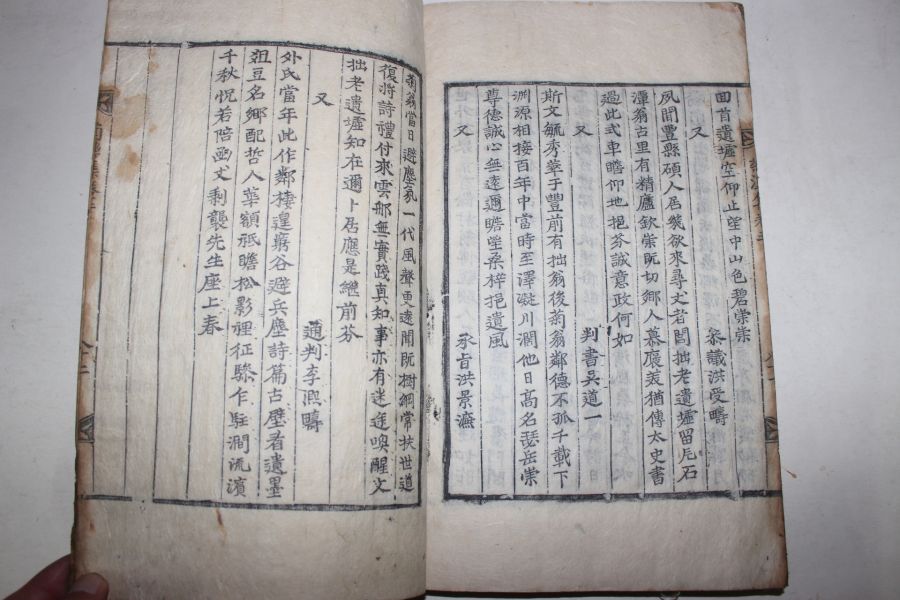 回首遺墟空仰止望中山色碧崇崇
又
叅議洪受疇
夙聞豊縣碩人居幾欲來尋丈者閭拙老遺墟留瓦石
潭翁古里有精廬欽崇旣切鄉人慕褒美猶傳太史書
過此式車瞻仰地挹芬誠意政何如
又
判書吳道一
斯文毓秀萃于豊前有拙翁後菊翁鄰德不孤千載下
淵源相接百年中當時至澤凝川濶他日高名瑟岳崇
尊德誠心無遠邇瞻望桑梓挹遺風
又
承旨洪景濂
菊翁當日避塵氛一代風聲更遠聞旣樹綱常扶世道
復將詩禮付來雲那無實踐真知事亦有迷途喚醒文
拙老遺墟知在邇卜居應是繼前芬
又
通判李熙疇
外氏當年此作鄰棲遑窮谷避兵塵詩篇古壁看遺墨
俎豆名鄉配哲人華額祇瞻松影裡征驂乍駐澗流濱
千秋怳若陪函丈剩襲先生座上春